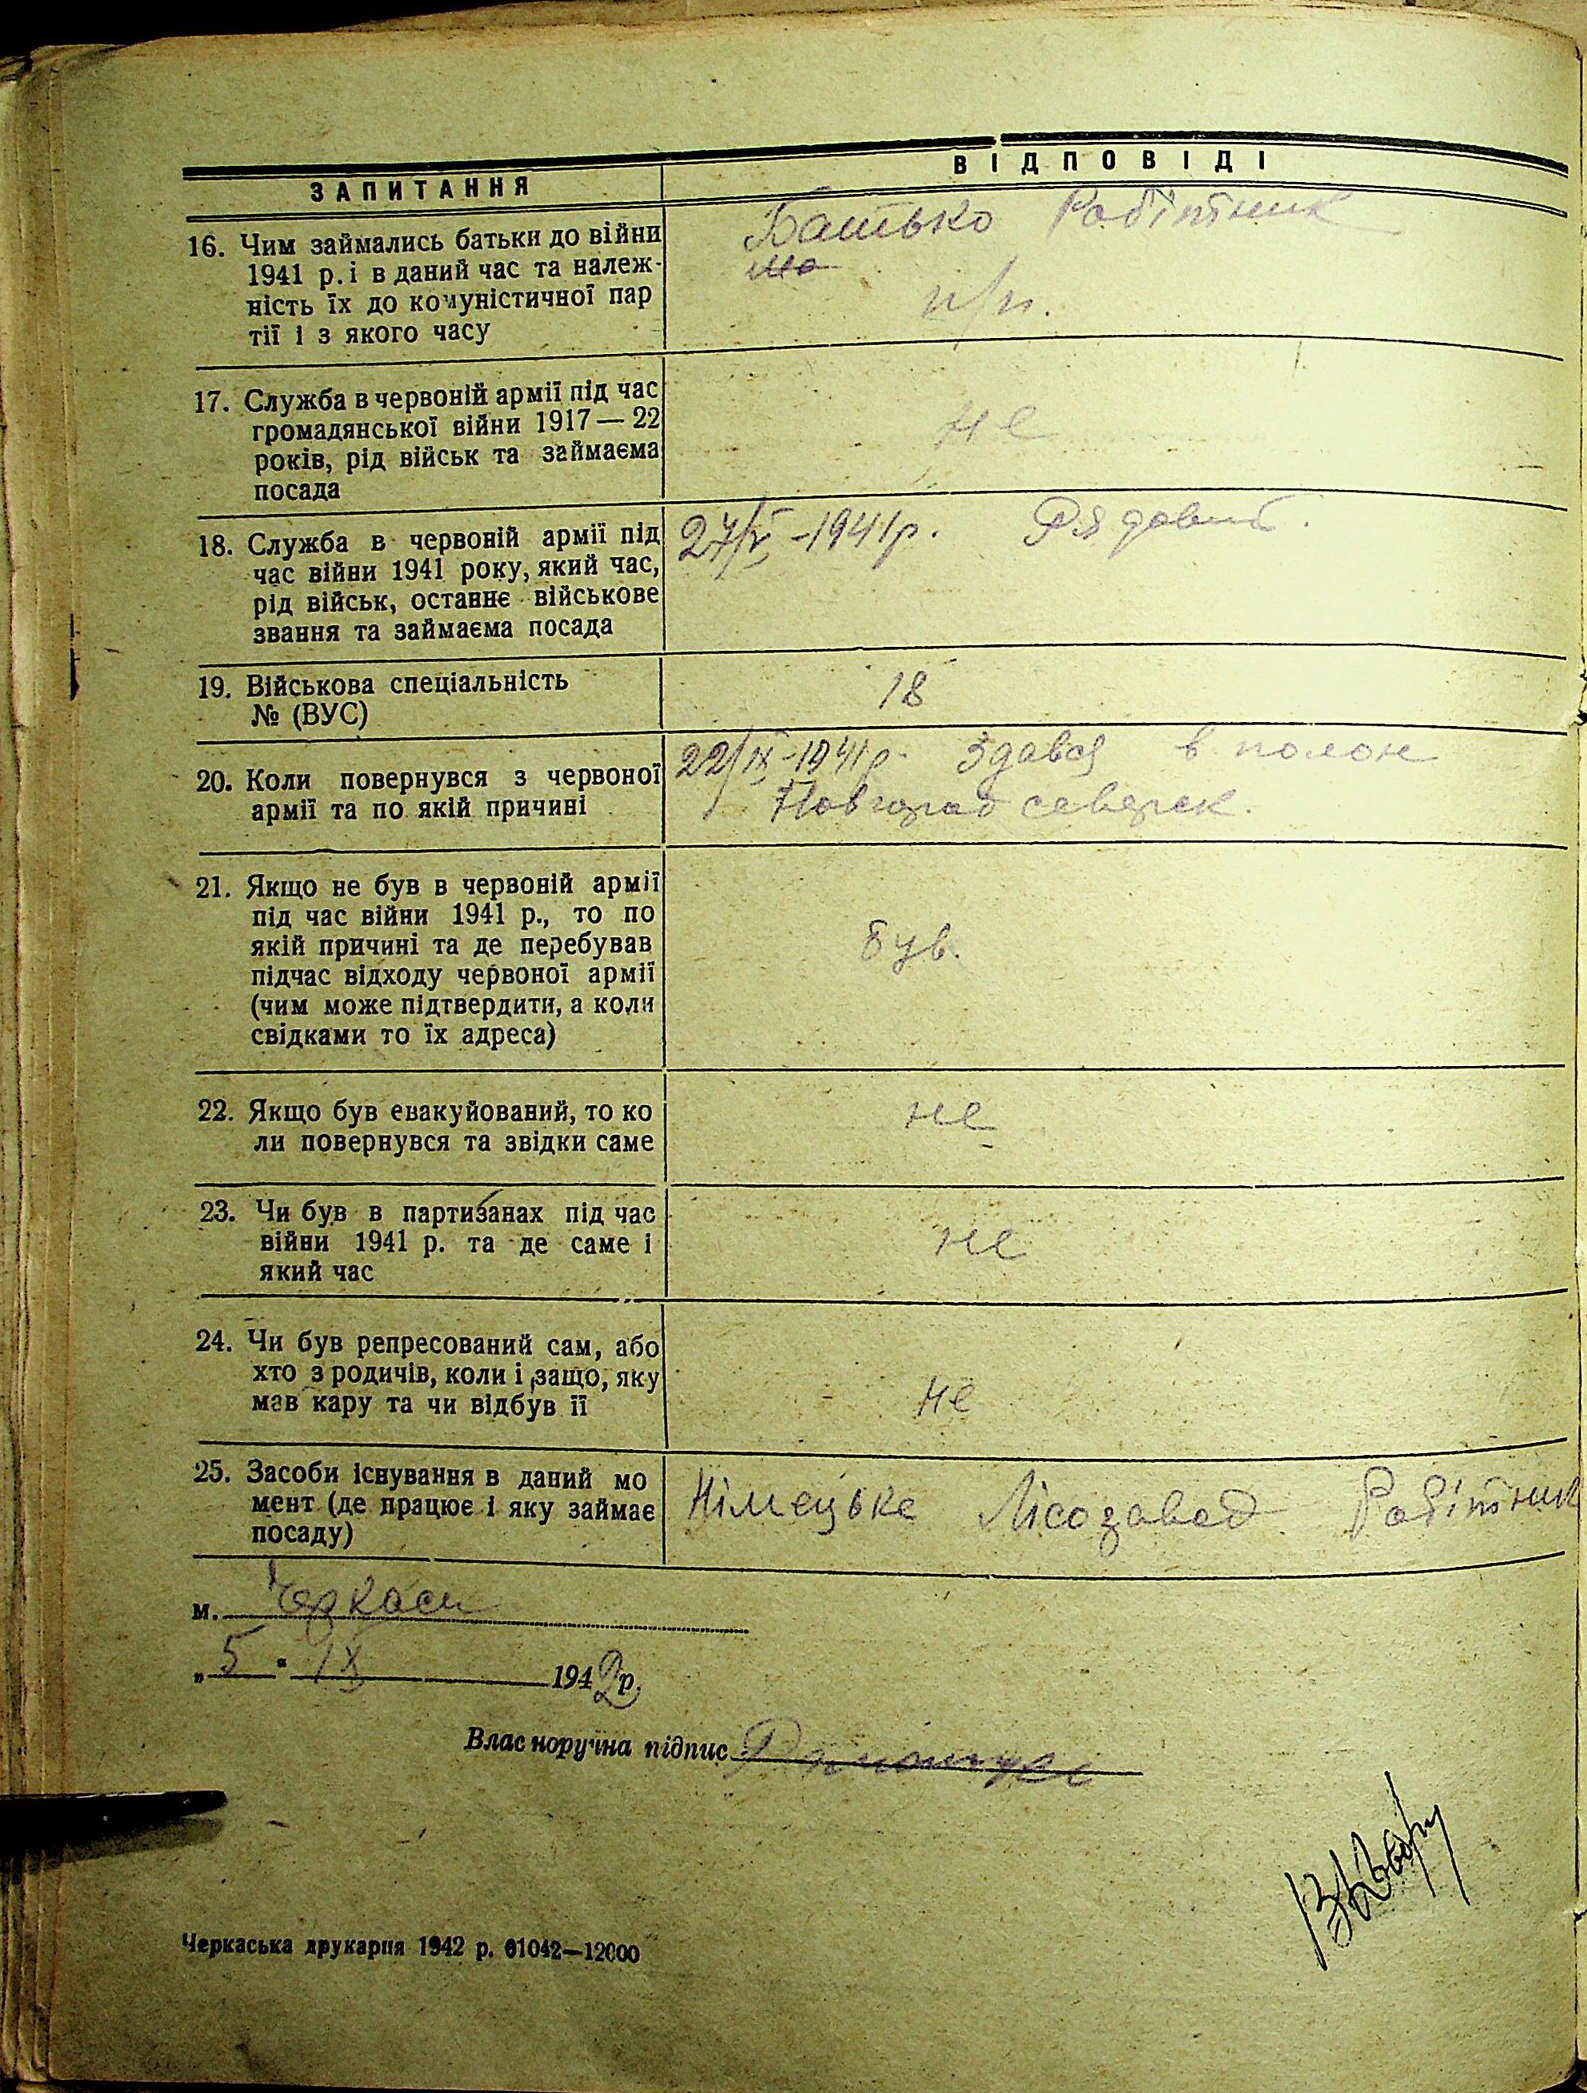 ЗАПИТАННЯ
ВІДПОВІДІ
16. Чим займались батьки до війни
1941 р. і в даний час та належ-
ність їх до комуністичної пар
тії і з якого часу
Батько Робітник
н/п.
17. Служба в червоній армії під час
громадянської війни 1917—22
років, рід військ та займаєма
посада
не
18. Служба в червоній армії під
час війни 1941 року, який час,
рід військ, останнє військове
звання та займаєма посада
-1941р. Рядовий.
19. Військова спеціальність
№ (ВУС)
18
20. Коли повернувся з червоної
армії та по якій причині
22/ІХ-1941р. Здався в полон
Новгород северск.
21. Якщо не був в червоній армії
під час війни 1941 р., то по
якій причині та де перебував
підчас відходу червоної армії
(чим може підтвердити, а коли
свідками то їх адреса)
був.
22. Якщо був евакуйований, то ко
ли повернувся та звідки саме
не
23. Чи був в партизанах під час
війни 1941 р. та де саме і
який час
не
24. Чи був репресований сам, або
хто з родичів, коли і защо, яку
мав кару та чи відбув її
не
25. Засоби існування в даний мо
мент (де працює і яку займає
посаду)
Німецьке Лісозавод Робітник
м. Черкаси
„5“ ІХ 1942р.
Власноручна підпис
Черкаська друкарня 1942 р. 01042—12000